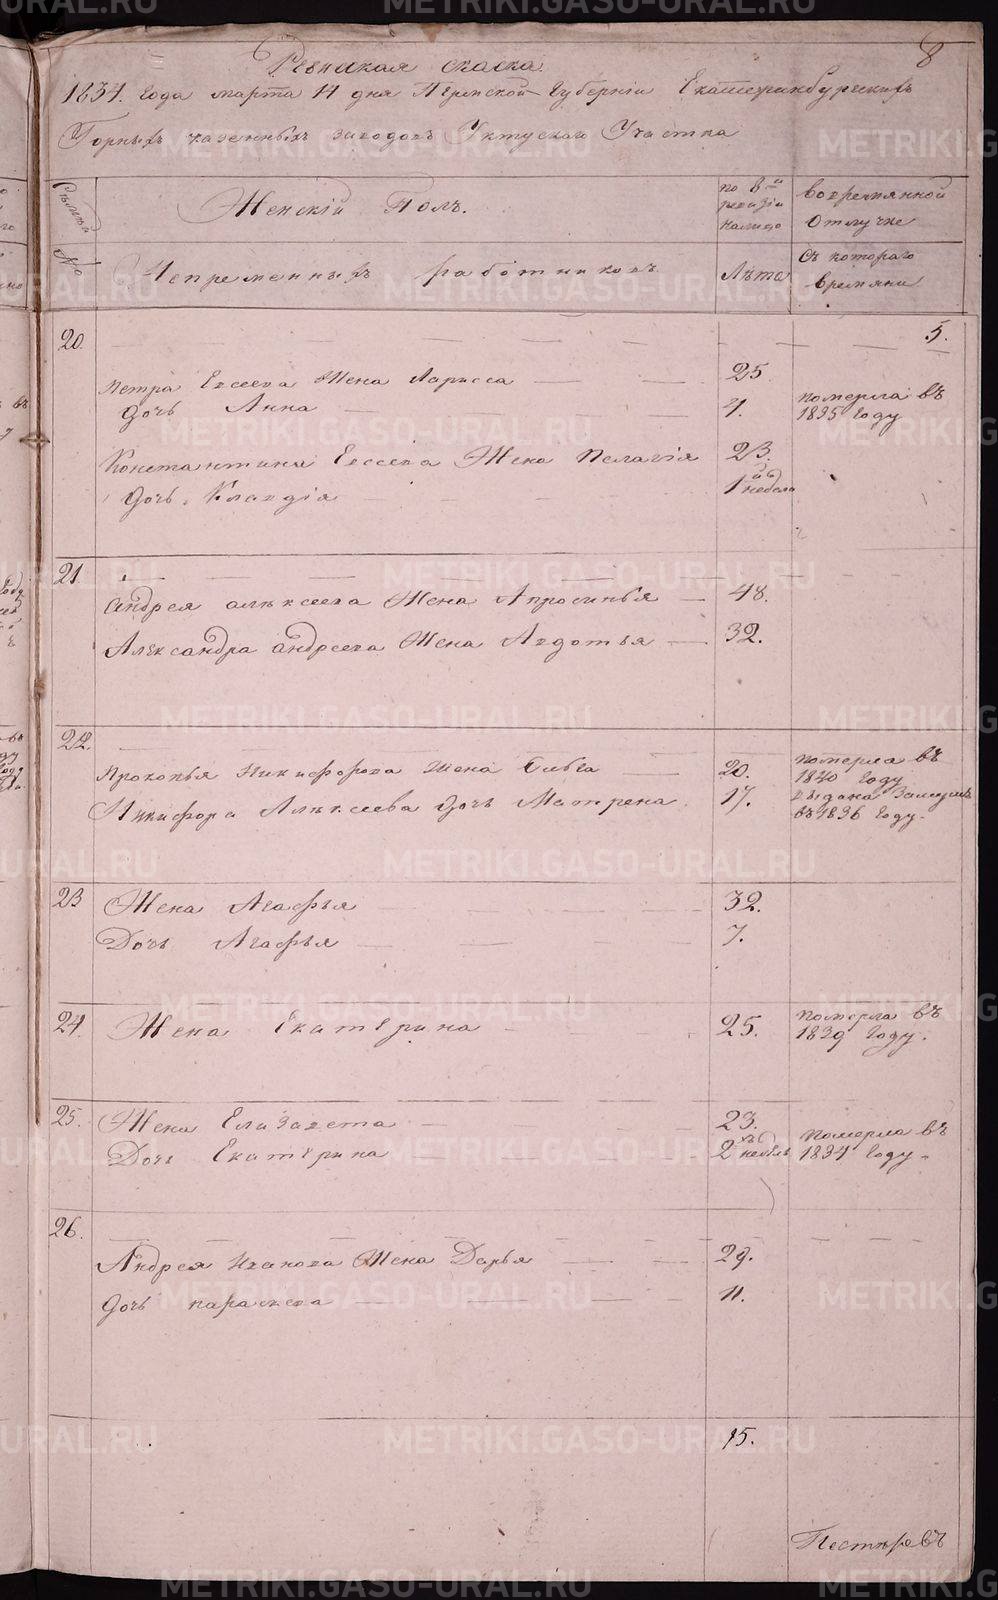 8
Ревизская скаска.
1834. Года марта 14 дня Пермской Губерніи Екатеринбургскихъ
Горныхъ казенныхъ заводовъ Уктускаго Участка
Семьи №
Женскій Полъ.
по 8-й ревизіи налицо
вовремянной отлучке
Непременныхъ работниковъ
Лѣта
съ котораго времяни
20.
5.
Петра Евсеева Жена Лариса 25
дочь Анна 4. померла въ 1835 Году
Константина Евсеева Жена Пелагія 23.
Дочь Клавдія 1 недели
21.
Андрея алексеева Жена Апросинья 48.
Александра андреева Жена Авдотья 32.
22.
Прокопья Никифорова Жена 20. померла въ 1840 Году
Никифора Алексеева дочь Матрена 17. выдана Замужъ въ 1836 Году.
23 Жена Агафья 32.
Дочь Агафья 7.
24. Жена Екатерина 25. померла въ 1839 Году.
25. Жена Елизавета 23.
Дочь Екатерина 2 недель померла въ 1834 Году.
26.
Андрея Иванова Жена Дарья 29.
дочь парасковa 11.
15.
METRIKI.GASO-URAL.RU